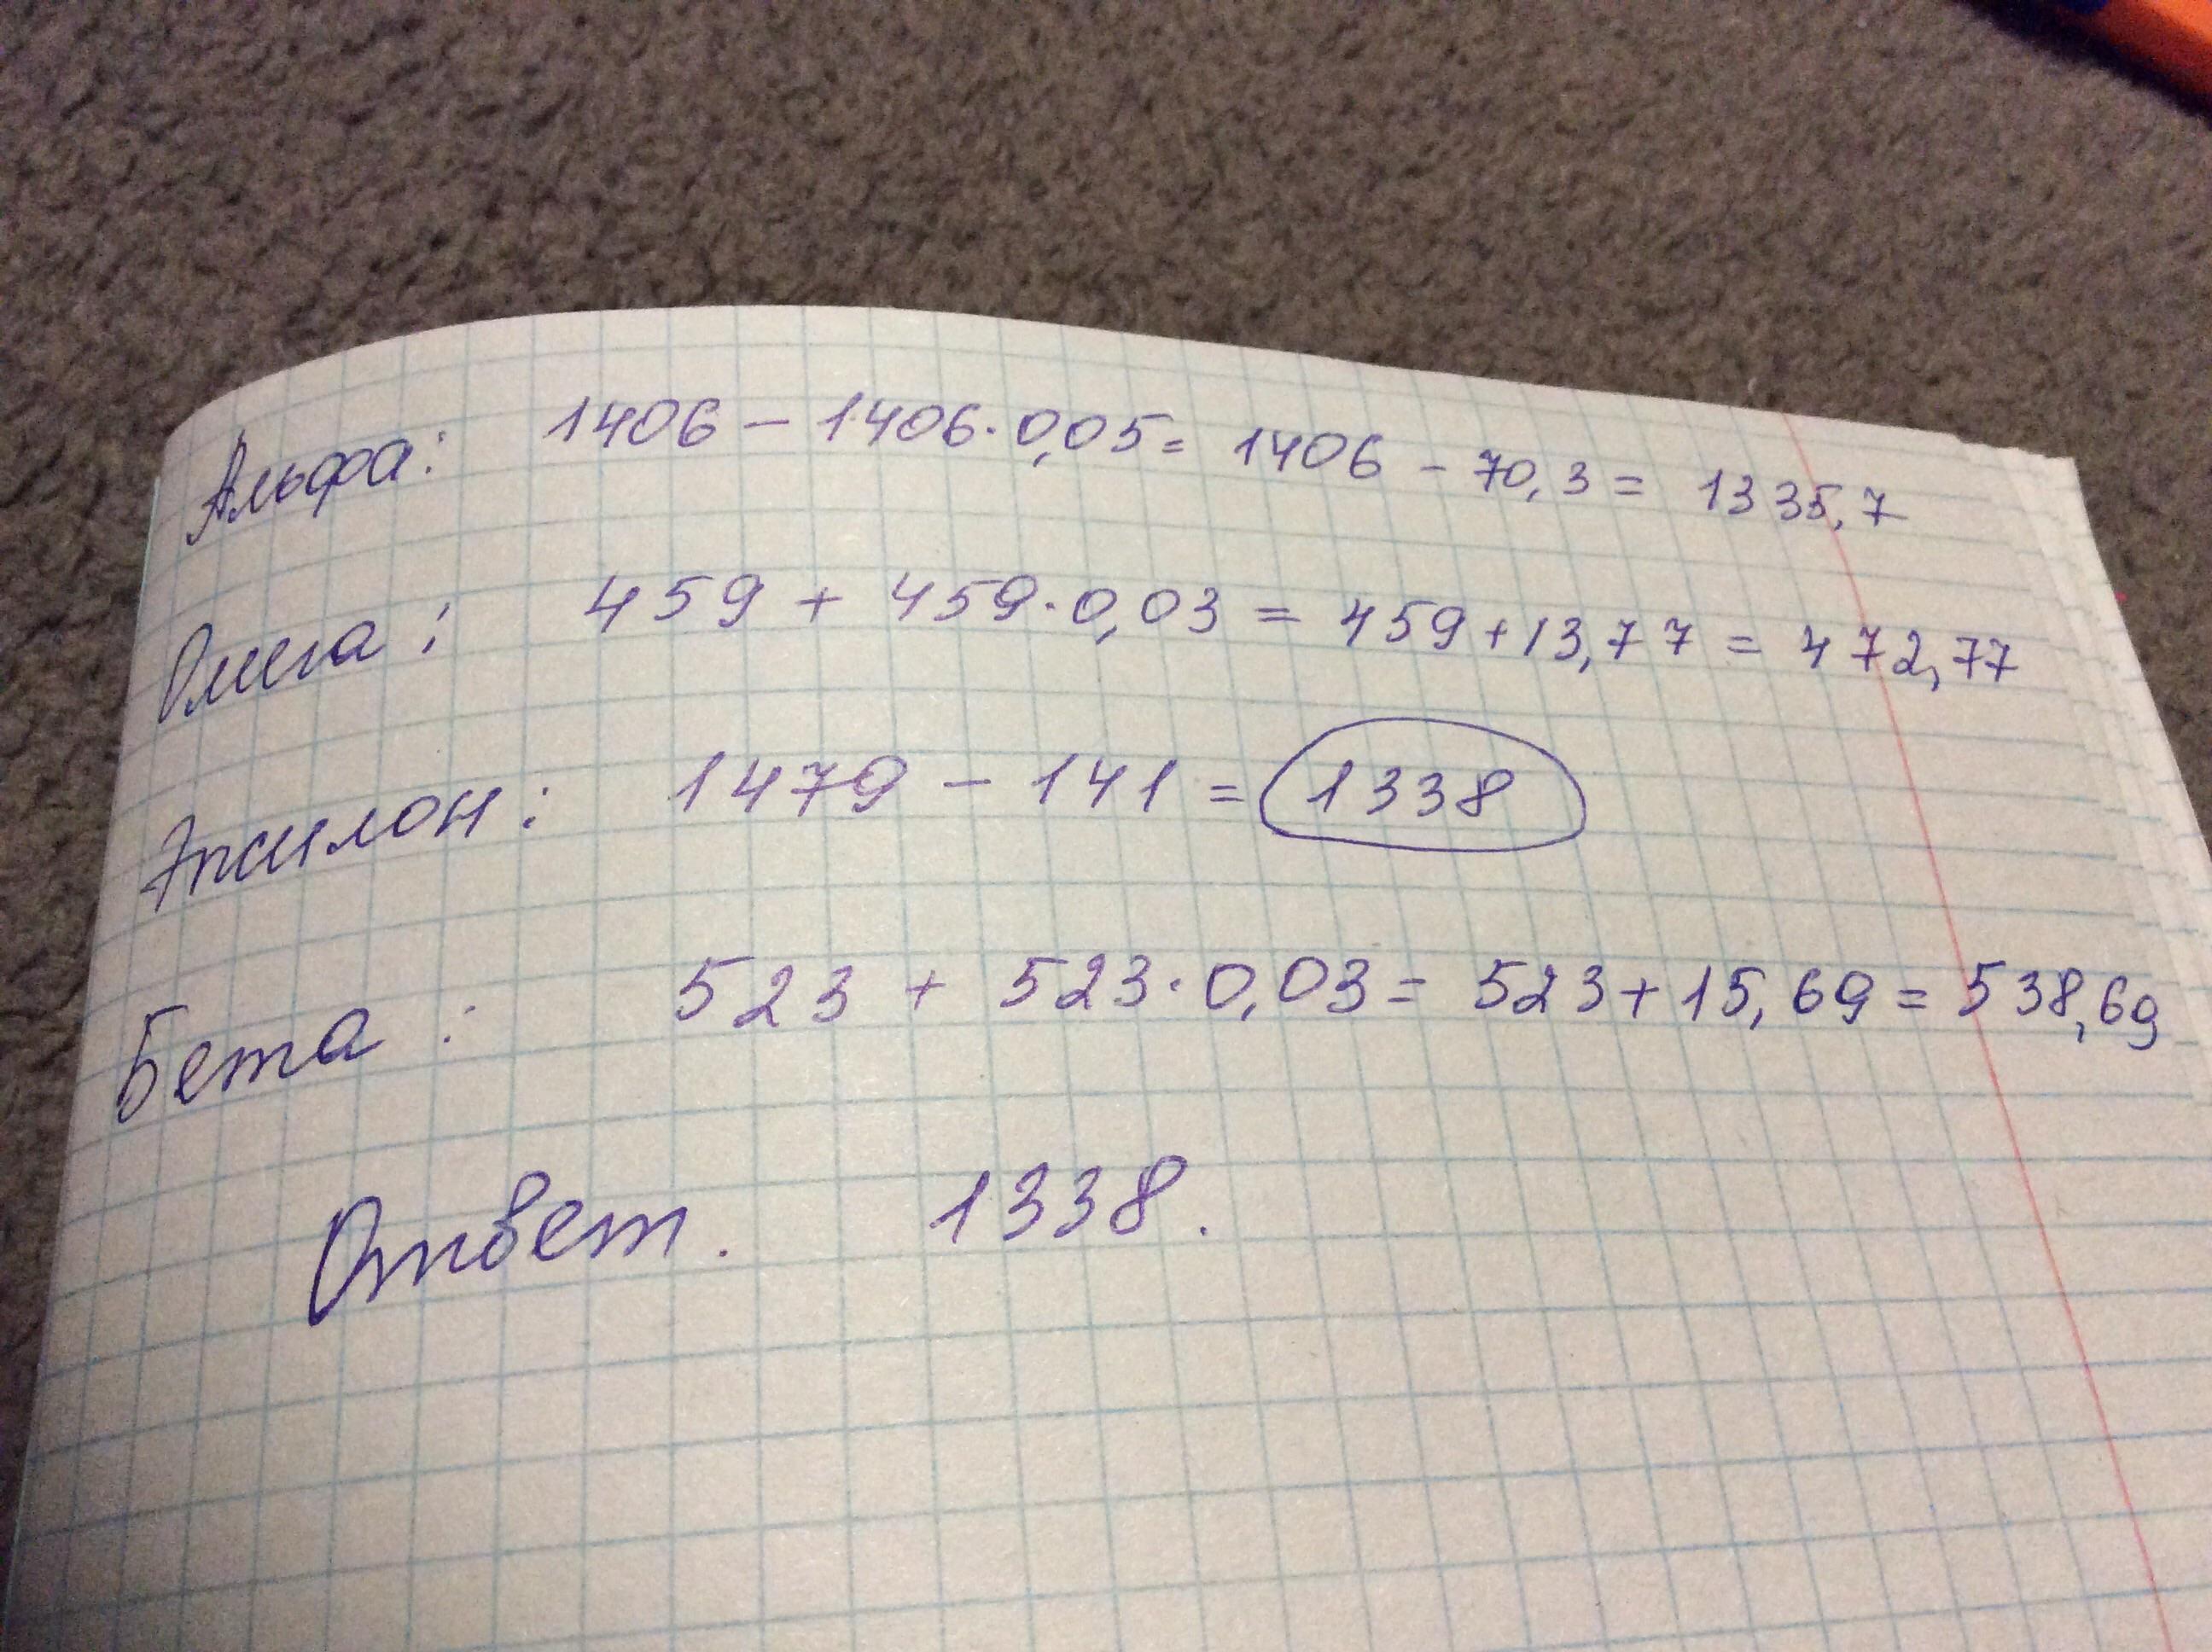 Альфа: 1406 - 1406·0,05 = 1406 - 70,3 = 1335,7
Омега: 459 + 459·0,03 = 459 + 13,77 = 472,77
Эпсилон: 1479 - 141 = 1338
Бета: 523 + 523·0,03 = 523 + 15,69 = 538,69
Ответ. 1338.